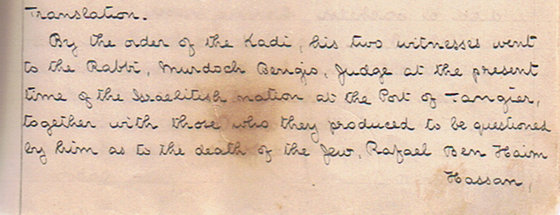 Translation.
By the order of the Kadi, his two witnesses went
to the Rabbi, Murdoch Bengio, Judge at the present
time of the Israelitish nation at the Port of Tangier,
together with those who they produced to be questioned
by him as to the death of the Jew, Rafael Ben Haim
Hassan,